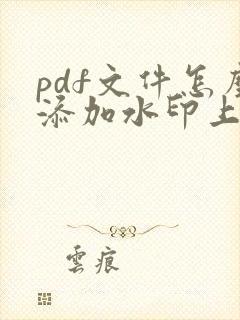 pdf文件怎
添加水印上
雲痕